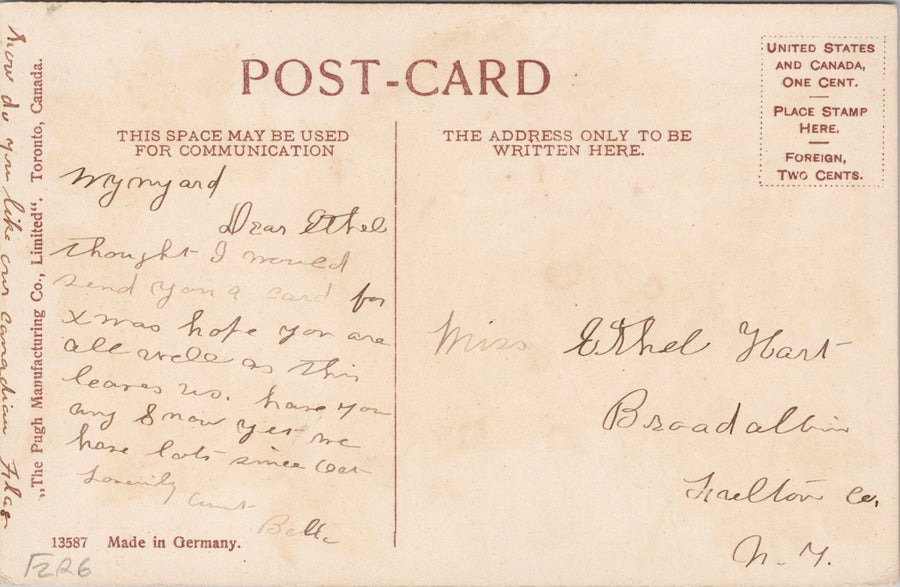 POST-CARD
UNITED STATES
AND CANADA,
ONE CENT.
PLACE STAMP
HERE.
FOREIGN,
TWO CENTS.
THIS SPACE MAY BE USED
FOR COMMUNICATION
THE ADDRESS ONLY TO BE
WRITTEN HERE.
Wynyard
Dear Ethel
thought I would
send you a card for
Xmas hope you are
all well as this
leaves us. have you
any Snow yet we
have lots since Oct
Lovenily
Aunt
Belle
How do you like our Canadian Flag
„The Pugh Manufacturing Co., Limited“. Toronto, Canada.
Miss Ethel Hart
Broadalbin
Fulton Co.
N. Y.
13587 Made in Germany.
FZR6